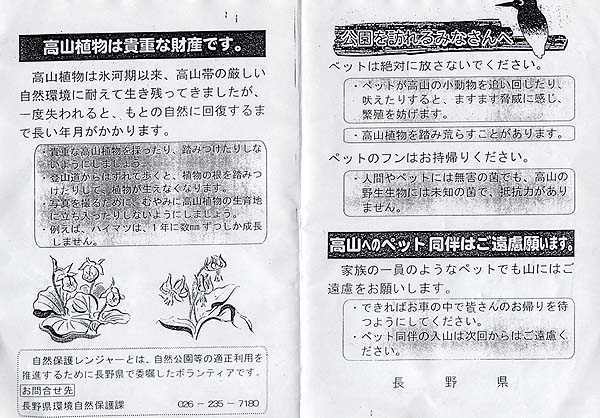 高山植物は貴重な財産です。
高山植物は氷河期以来、高山帯の厳しい
自然環境に耐えて生き残ってきましたが、
一度失われると、もとの自然に回復するま
で長い年月がかかります。
・貴重な高山植物を採ったり、踏みつけたりしな
いようにしましょう。
・登山道からはずれて歩くと、植物の根を踏みつ
けたりして、植物が生えなくなります。
・写真を撮るために、むやみに高山植物の生育地
に立ち入ったりしないようにしましょう。
・例えば、ハイマツは、1年に数mmずつしか成長
しません。
自然保護レンジャーとは、自然公園等の適正利用を
推進するために長野県で委嘱したボランティアです。
お問合せ先
長野県環境自然保護課 026-235-7180
公園を訪れるみなさんへ
ペットは絶対に放さないでください。
・ペットが高山の小動物を追い回したり、
吠えたりすると、ますます脅威に感じ、
繁殖を妨げます。
・高山植物を踏み荒らすことがあります。
ペットのフンはお持帰りください。
・人間やペットには無害の菌でも、高山の
野生生物には未知の菌で、抵抗力があり
ません。
高山へのペット同伴はご遠慮願います。
家族の一員のようなペットでも山にはご
遠慮をお願いします。
・できればお車の中で皆さんのお帰りを待
つようにしてください。
・ペット同伴の入山は次回からはご遠慮く
ださい。
長野県